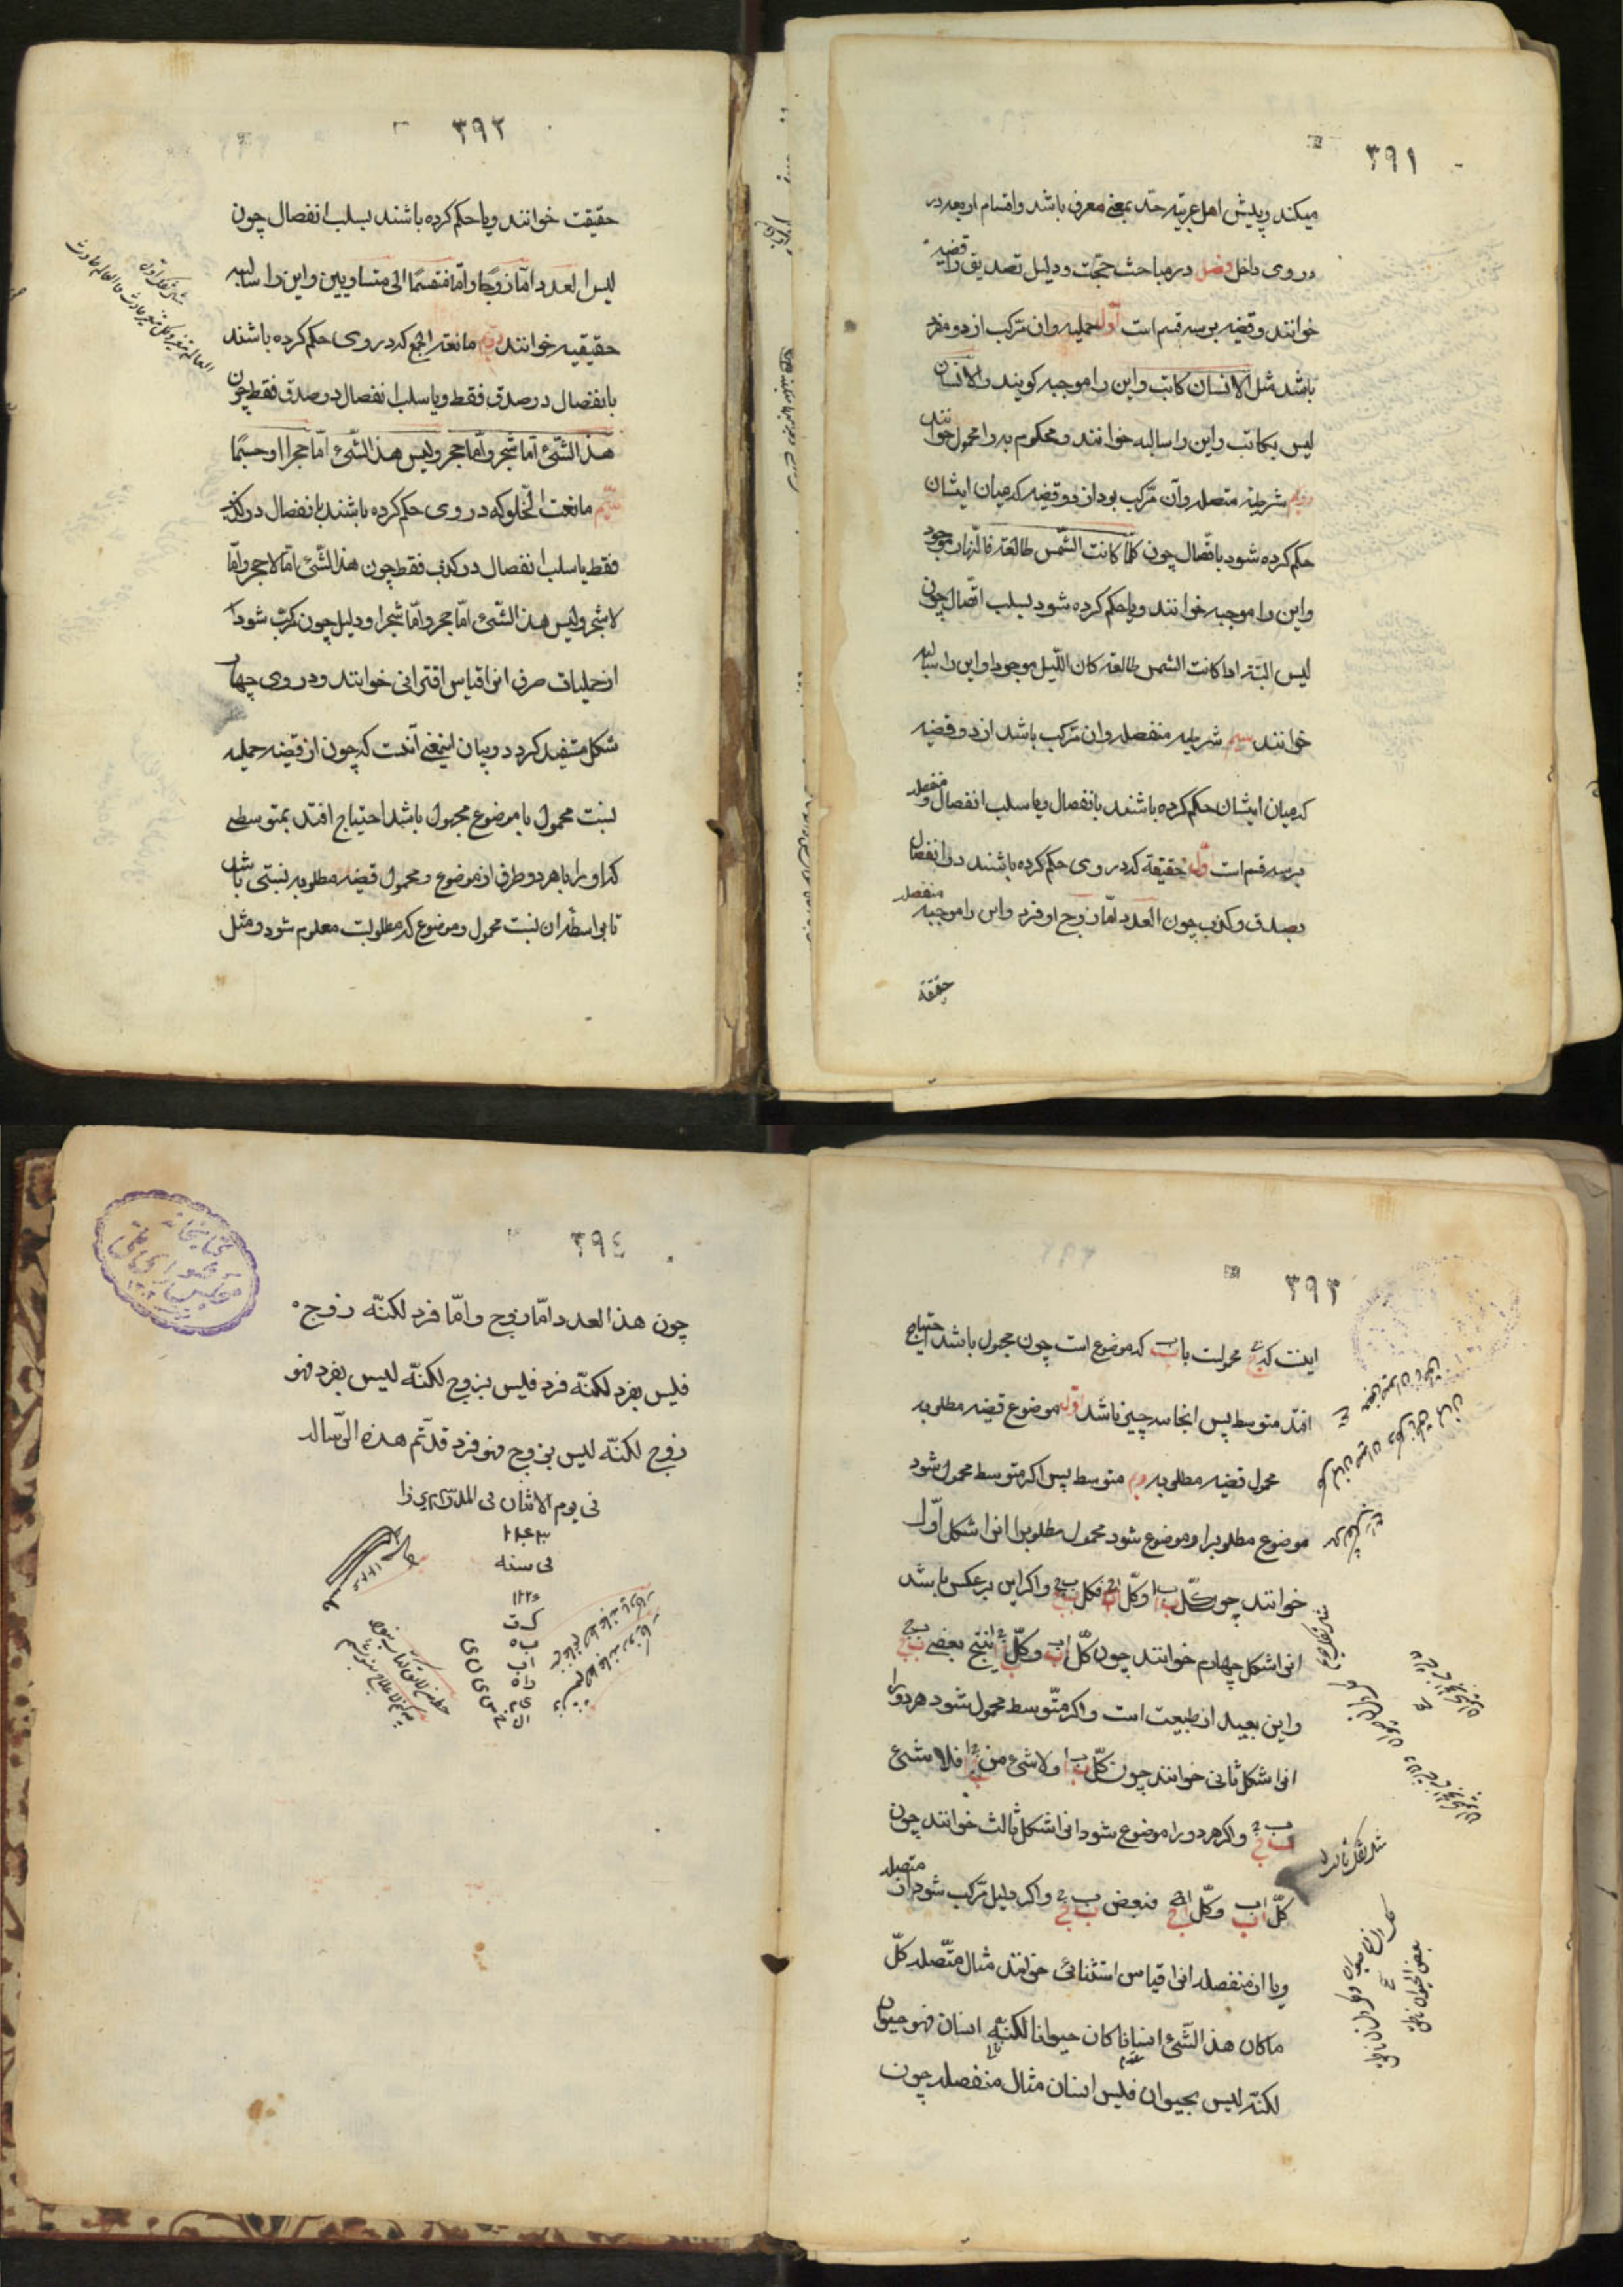 ٣٩١
میکند و پیش اهل عربیة حد بمعنی معرف باشد و اقسام اربعه در
در وی داخل فصل در مباحث حجت و دلیل تصدیق را قضیه
خوانند و قضیه بر سه قسم است اول حملیه و ان مرکب از دو مفرد
باشد مثل الانسان کاتب و این را موجبه کویند و الانسان
لیس بکاتب و این را سالبه خوانند و محکوم به را محمول خوانند
دویم شرطیه متصله و آن مرکب بود از دو قضیه که میان ایشان
حکم کرده شود باتصال چون کلما کانت الشمس طالعة فالنهار موجود
و این را موجبه خوانند و یا حکم کرده شود بسلب اتصال چون
لیس البتة اذا کانت الشمس طالعة کان اللیل موجودا و این را سالبه
خوانند سیم شرطیه منفصله و ان مرکب باشد از دو قضیه
که میان ایشان حکم کرده باشند بانفصال و یا سلب انفصال و منفصله
بر سه قسم است اول حقیقة که در وی حکم کرده باشند در انفصال
بصدق و کذب چون العدد اما زوج او فرد و این را موجبه منفصله
حقیقة
٣٩٢
حقیقت خوانند و یا حکم کرده باشند بسلب انفصال چون
لیس العدد اما زوجا و اما منقسما الی متساویین و این را سالبه
حقیقیه خوانند دویم مانعة الجمع که در وی حکم کرده باشند
بانفصال در صدق فقط و یا سلب انفصال در صدق فقط چون
هذا الشئ اما شجر و اما حجر و لیس هذا الشئ اما حجرا او جسما
سیم مانعت الخلو که در وی حکم کرده باشند بانفصال در کذب
فقط یا سلب انفصال در کذب فقط چون هذا الشئ اما لا حجر و اما
لا شجر و لیس هذا الشئ اما حجر و اما شجرا و دلیل چون مرکب شود
از حملیات صرف انرا قیاس اقترانی خوانند و در وی چهار
شکل متفید کردد و بیان اینمعنی آنست که چون از قضیه حملیه
نسبت محمول با موضوع مجهول باشد احتیاج افتد بمتوسطی
که او را با هر دو طرف از موضوع و محمول قضیه مطلوبه نسبتی باشد
تا بواسطه ان نسبت محمول و موضوع که مطلوبست معلوم شود و مثل
العالم متغیر و کل متغیر حادث فالعالم حادث
٣٩٣
اینست که ج محمولست با ب که موضوع است چون مجهول باشد احتیاج
افتد متوسط پس انجا سه چیز باشد اول موضوع قضیه مطلوبه
محمول قضیه مطلوبه دوم متوسط پس اکر متوسط محمول شود
موضوع مطلوبرا و موضوع شود محمول مطلوبرا انرا شکل اول
خوانند چون کل ب ا و کل ا ج فکل ب ج و اکر این برعکس باشد
انرا شکل چهارم خوانند چون کل ا ب و کل ج ا ینتج بعض ب ج
و این بعید از طبیعت است و اکر متوسط محمول شود هر دو را
انرا شکل ثانی خوانند چون کل ب ا و لا شئ من ج ا فلا شئ
ب ج و اکر هر دو را موضوع شود انرا شکل ثالث خوانند چون
کل ا ب و کل ا ج فبعض ب ج و اکر دلیل مرکب شود از متصله
و یا از منفصله انرا قیاس استثنائی خوانند مثال متصله کل
ما کان هذا الشئ انسانا کان حیوانا لکنه انسان فهو حیوان
لکنه لیس بحیوان فلیس انسان مثال منفصله چون
٣٩٤
چون هذا العدد اما زوج و اما فرد لکنه زوج
فلیس بفرد لکنه فرد فلیس بزوج لکنه لیس بفرد فهو
زوج لکنه لیس بزوج فهو فرد قد تم هذه الرساله
فی یوم الاثنان فی
فی سنه
کتابخانه
مجلس شورای ملی